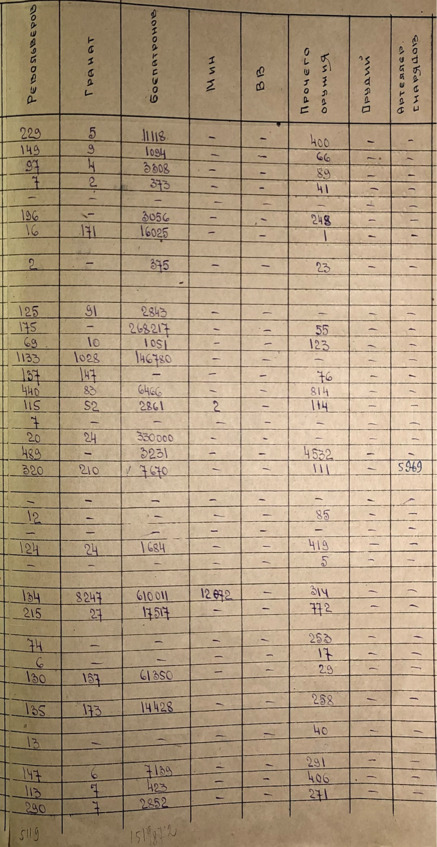 Револьверов Гранат Боепатронов Мин ВВ Прочего оружия Орудий Артеллер. снарядов
229 5 11118 - - 400 - -
149 9 1094 - - 66 - -
97 4 3308 - - 89 - -
7 2 373 - - 41 - -
- - - - - - - -
196 - 3056 - - 248 - -
16 171 16025 - - 1 - -
2 - 375 - - 23 - -
125 91 2843 - - - - -
175 - 268217 - - 55 - -
69 10 1051 - - 123 - -
1133 1028 146780 - - - - -
137 147 - - - 76 - -
440 83 6466 - - 814 - -
115 52 2861 2 - 114 - -
7 - - - - - - -
20 24 330000 - - - - -
489 - 3231 - - 4532 - -
320 210 7670 - - 111 - 5969
- - - - - - - -
12 - - - - 85 - -
- - - - - - - -
124 24 1684 - - 419 - -
- - - - - 5 - -
134 8247 610011 - 314 - -
215 27 17517 - - 772 - -
74 - - - - 253 - -
6 - - - - 17 - -
130 157 61350 - - 29 - -
135 173 14428 - - 258 - -
13 - - - - 40 - -
147 6 7139 - - 291 - -
113 7 423 - - 406 - -
290 7 2852 - - 271 - -
5119